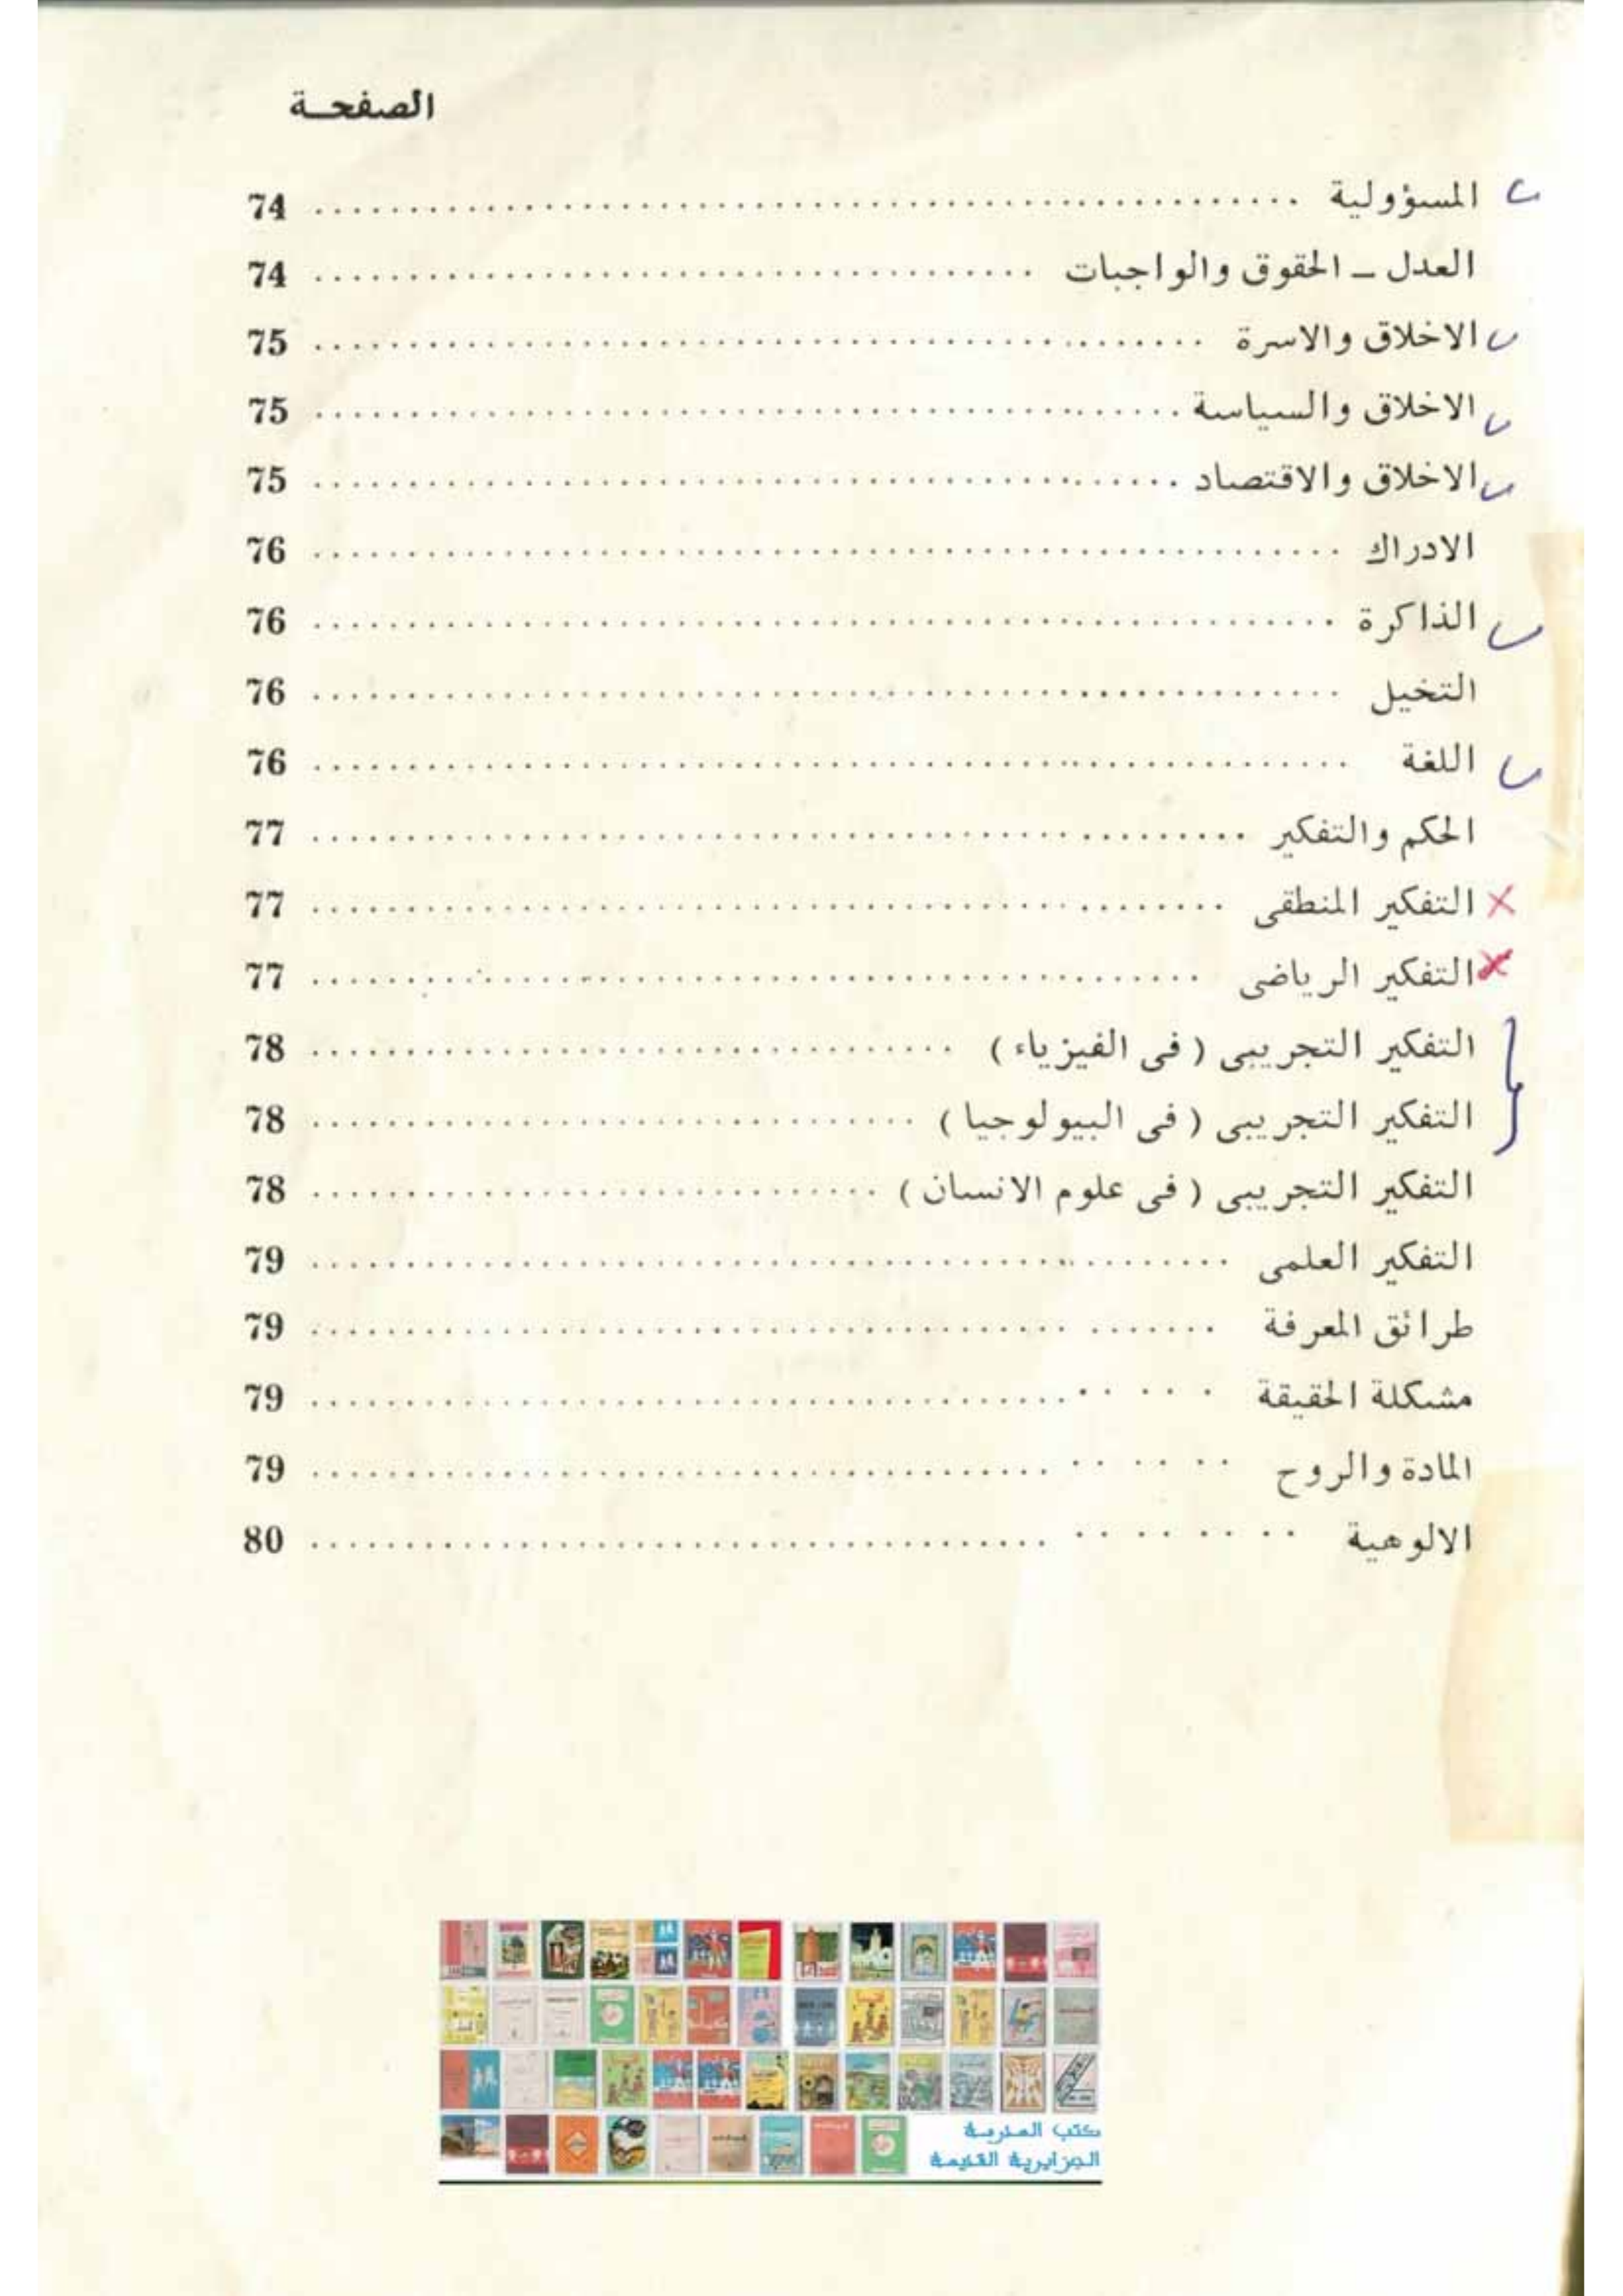 الصفحة
المسؤولية ........ 74
العدل ـ الحقوق والواجبات ........ 74
الاخلاق والاسرة ........ 75
الاخلاق والسياسة ........ 75
الاخلاق والاقتصاد ........ 75
الادراك ........ 76
الذاكرة ........ 76
التخيل ........ 76
اللغة ........ 76
الحكم والتفكير ........ 77
التفكير المنطقى ........ 77
التفكير الرياضى ........ 77
التفكير التجريبى ( فى الفيزياء ) ........ 78
التفكير التجريبى ( فى البيولوجيا ) ........ 78
التفكير التجريبى ( فى علوم الانسان ) ........ 78
التفكير العلمى ........ 79
طرائق المعرفة ........ 79
مشكلة الحقيقة ........ 79
المادة والروح ........ 79
الالوهية ........ 80
كتب المدرسة
الجزايرية القديمة